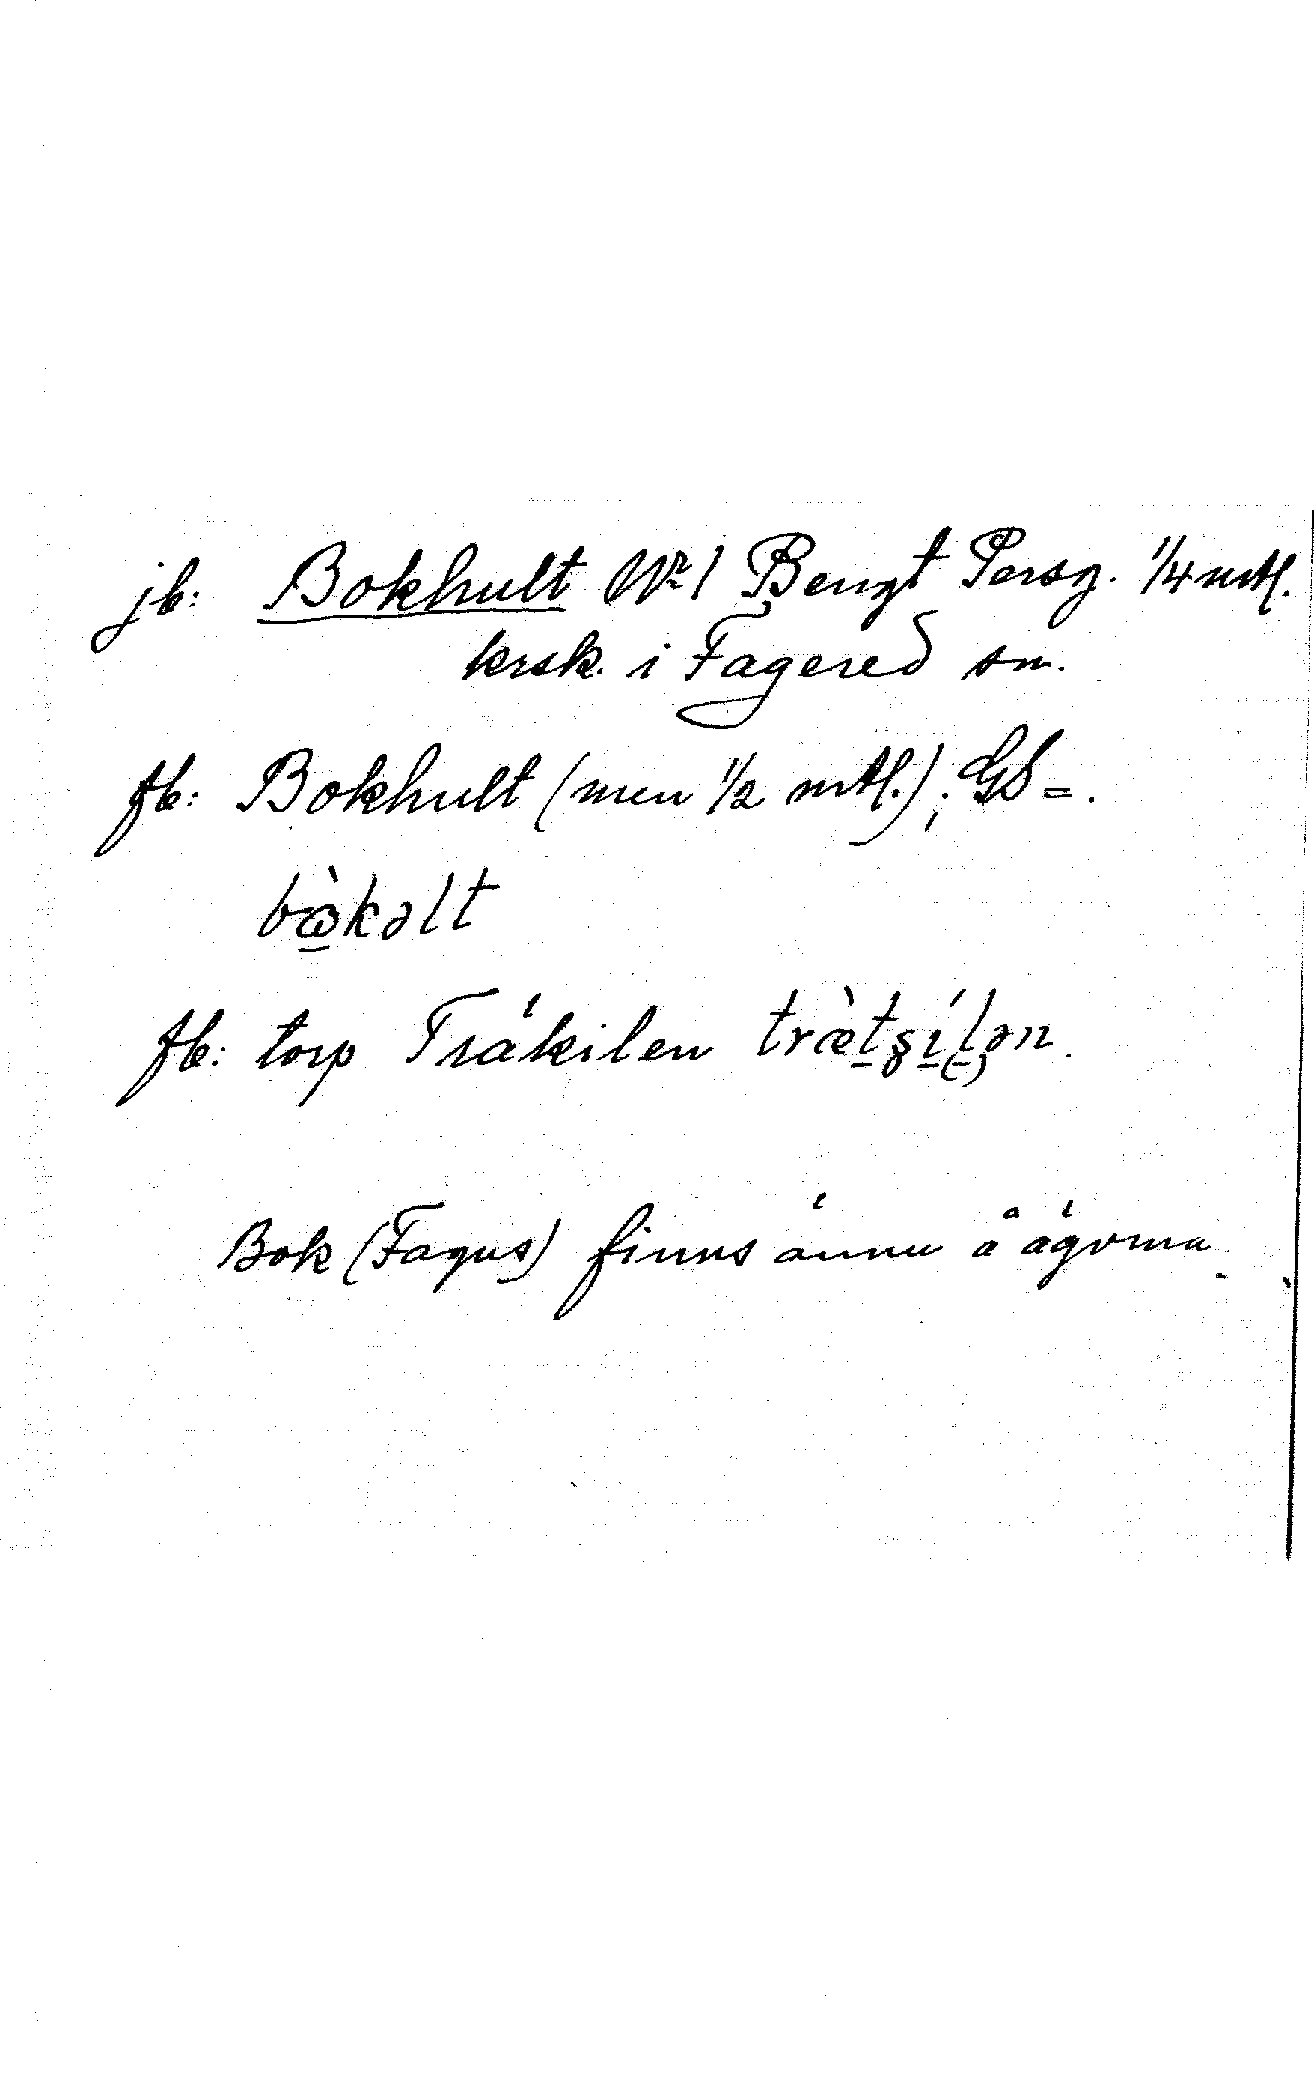 jb: Bokhult Nr 1 Bengt Persg. 1/4 mtl.
krsk. i Fagered sn.
fb: Bokhult (men 1/2 mtl.); GS =.
bὼ̠kəlt
fb: torp Träkilen træ̀t̠ʂí̠l̠ən
Bok (Fagus) finns ännu å ägorna.